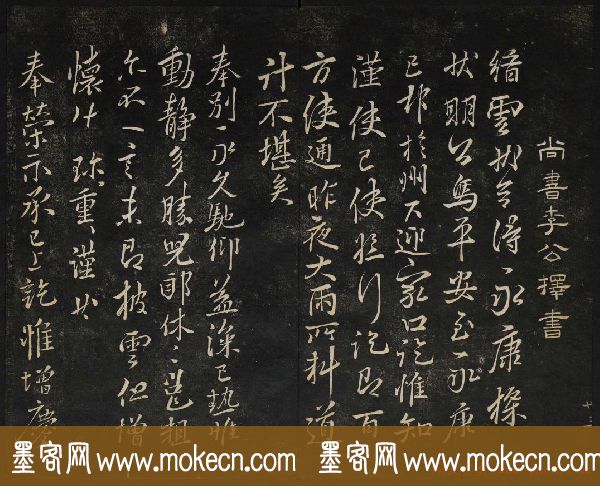 尚書李公擇書
縉雲令得永康探
狀明公平安至永康
已於州下迎家口訖惟知
使已使行訖即百
方使通昨夜大雨所料道
計不堪矣
奉別永久馳仰益深已熱惟
動靜多勝兒郎休休邕粗
尔不一言未即披雲但增
懷珍重謹
奉榮示承已上訖惟增慶
墨客网 www.mokecn.com 墨客网 www.mokecn.com